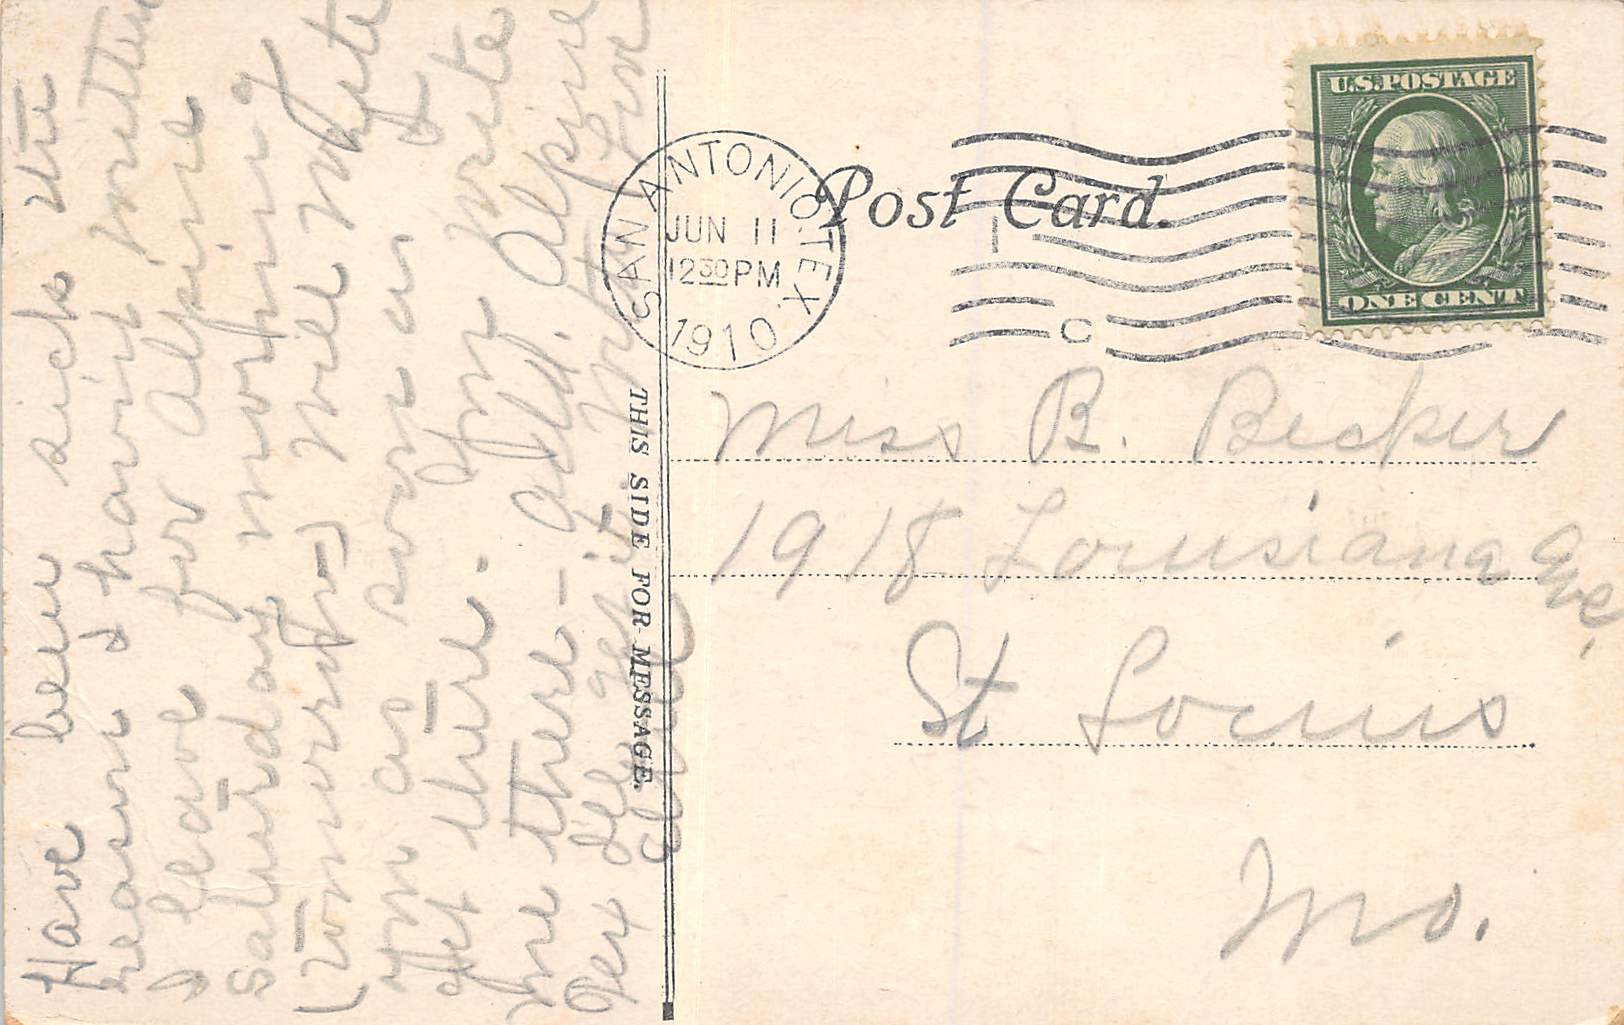 Post Card.
U.S. POSTAGE
ONE CENT
SAN ANTONIO, TEX.
JUN 11
12 30 PM
1910
C
THIS SIDE FOR MESSAGE.
Miss B. Becker
1918 Louisiana Ave.
St Louis
Mo.
Have been sick the
reason I haven't written
I leave for Alpine
Saturday morning
(tomorrow) Will write
you as soon as I
get there. You write
me there - add. Alpine
Tex I'll get it
Love